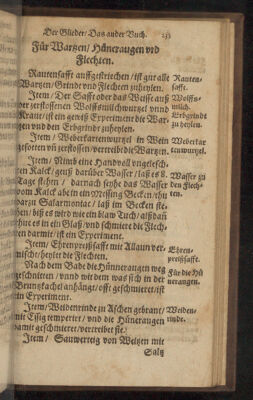 Der Glieder / Das ander Buch. 233
Für Wartzen / Hüneraugen vnd
Flechten.
Rautensafft auffgestrichen / ist gut alle
Wartzen / Grinde vnd Flechten zuheylen.
Item / Der Safft oder das Weisse auß
der zerstossenen Wolffsmilchwurtzel vnnd
Kraut / ist ein gewiß Experiment die War-
tzen vnd den Erbgrindt zuheylen.
Item / Weberkartenwurtzel in Wein
gesotten vñ zerstossen / vertreibt die Wartzen.
Item / Nimb eine Handvoll vngelesch-
ten Kalck / geuß darüber Wasser / laß es 8.
Tage stehen / darnach seyhe das Wasser
vom Kalck abe in ein Messing Becken / thu
darzu Salarmoniac / laß im Becken ste-
hen / biß es wird wie ein blaw Tuch / alsdañ
thue es in ein Glaß / vnd schmiere die Flech-
ten darmit / ist ein Experiment.
Item / Ehrenpreißsafft mit Allaun ver-
mischt / heylet die Flechten.
Nach dem Bade die Hüneraugen weg
geschnitten / vnnd wid dem was sich in der
Bruntzkachel anhängt / offt geschmieret / ist
ein Experiment.
Item / Weidenrinde zu Aschen gebrant /
mit Essig temperiret / vnd die Hüneraugen
damit geschmieret / vertreibet sie.
Item / Sauwerteig von Weitzen mit
Saltz
Rauten-
safft.
Wolffs-
milch.
Erbgrindt
zu heylen.
Weberkar
tenwurtzel.
Wasser zu
den Flech-
ten.
Ehren-
preißsafft.
Für die Hü
neraugen.
Weiden-
rinde.